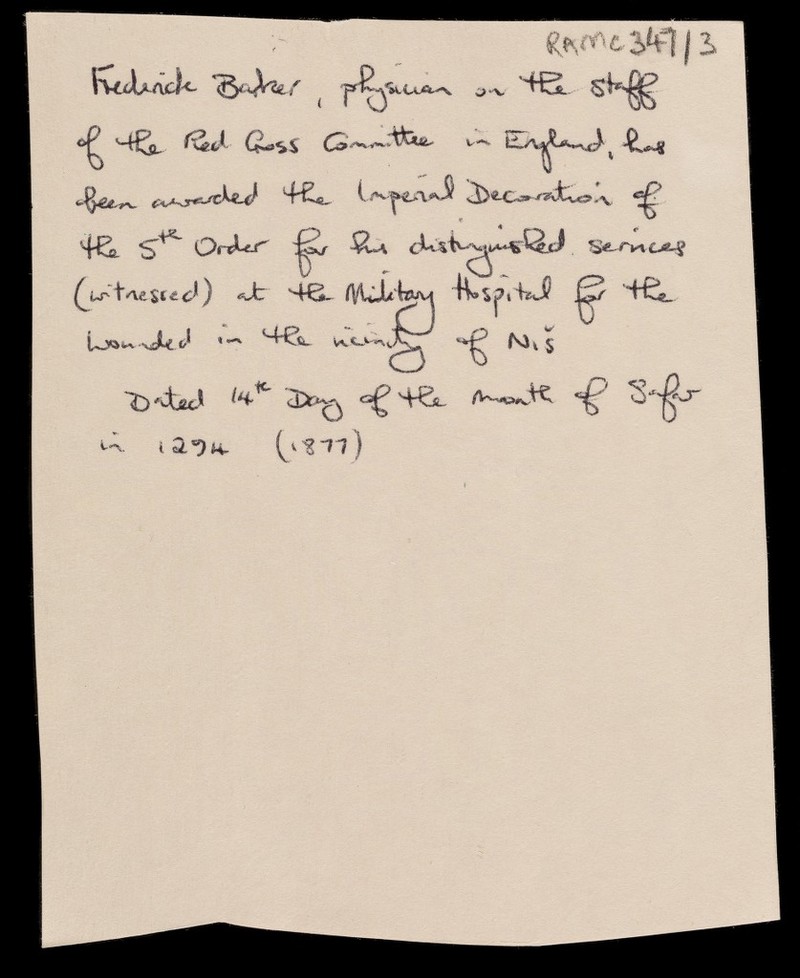 RAMC 347/3
Frederick Barker, physician on the staff
of the Red Cross Committee in England, has
been awarded the Imperial Decoration of
the 5th Order for his distinguished services
(witnessed) at the Military Hospital for the
wounded in the vicinity of Niš
Dated 14th Day of the month of Safar
in 1294 (1877)